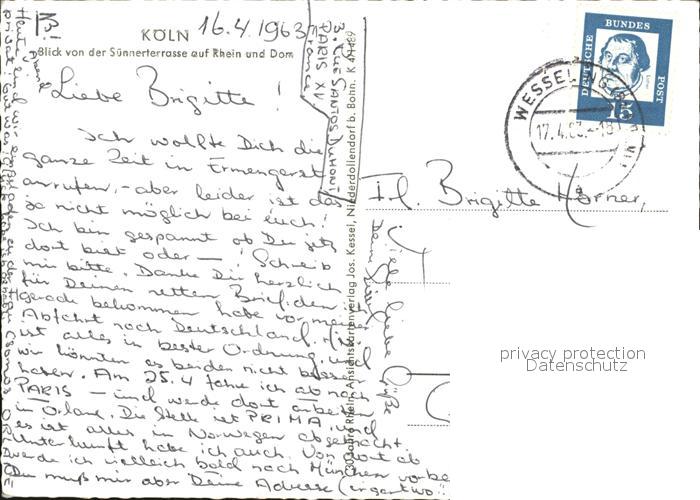 KÖLN 16.4.1963
Blick von der Sünnerterrasse auf Rhein und Dom
Liebe Brigitte!
Ich wollte Dich die
ganze Zeit in Ermengerst
anrufen, - aber leider ist das
ja nicht möglich bei euch!
Ich bin gespannt ob Du jetzt
dort bist oder — ! Schreib
mir bitte. Danke Dir herzlich
für Deinen netten Brief, den
gerade bekommen habe vor meiner
Abfahrt nach Deutschland.
ist alles in bester Ordnung, und
wir könnten es beiden nicht besser
haben. Am 25.4 fahre ich ab nach
PARIS — und werde dort arbeiten
in Orlang. Die Stelle ist PRIMA, und
es ist alles in Norwegen abgemacht.
Unterkunft habe ich auch. Von dort ab
werde ich vielleicht bald nach München
Du mußt mir aber Deine Adresse
3. RUE SANTOS DUMONT
PARIS XV
France
30 Jahre Rhein. Ansichtskartenverlag Jos. Kessel, Niederdollendorf b. Bonn. K 4/1489
DEUTSCHE
BUNDES
POST
Luther
15
WESSELING
17.4.63.-18
Frl. Brigitte Hörner,
Viele liebe Grüße
privacy protection
Datenschutz